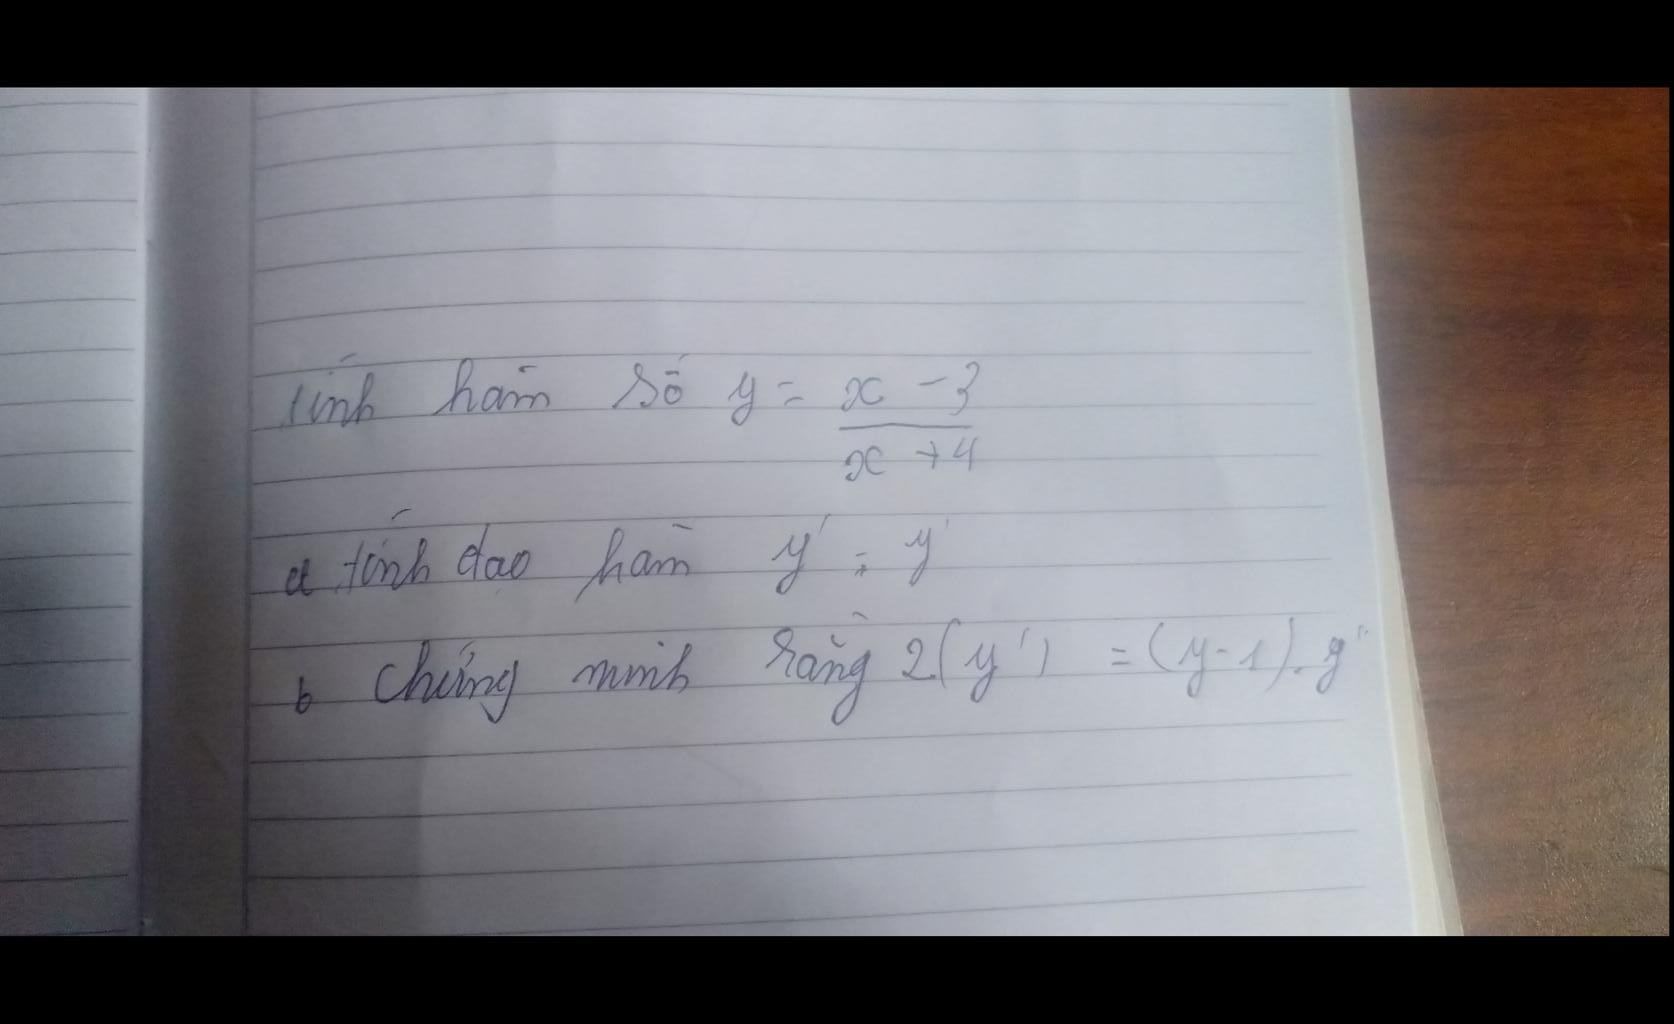 tính hàm số y = x - 3
x + 4
a tính đạo hàm y' ; y'
b chứng minh rằng 2(y') = (y-1).y"